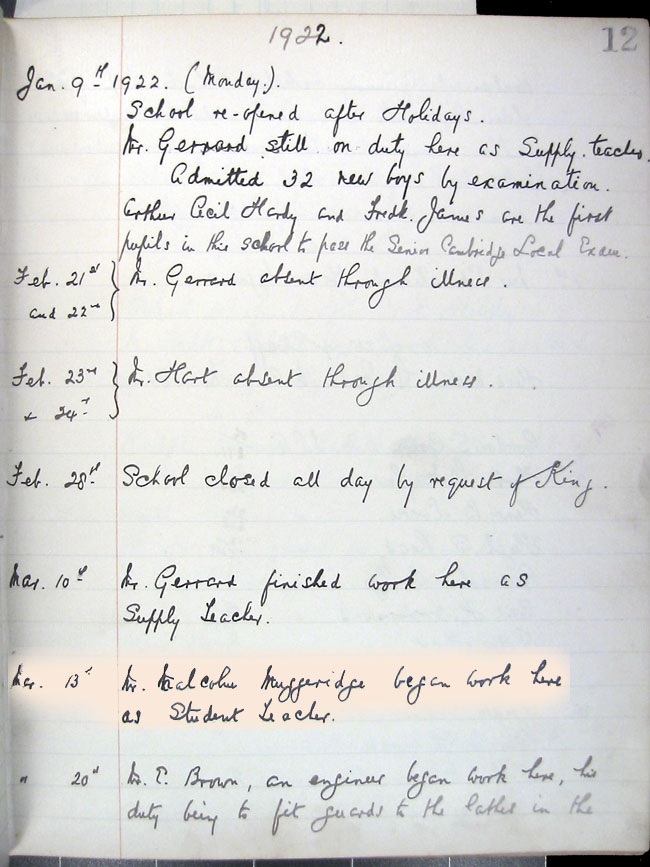 1922.
12
Jan. 9th 1922. (Monday.).
School re-opened after Holidays.
Mr. Gerrard still on duty here as Supply teacher.
Admitted 32 new boys by examination.
Arthur Cecil Hardy and Fredk. James are the first
pupils in this school to pass the Senior Cambridge Local Exam.
Feb. 21st and 22nd } Mr. Gerrard absent through illness.
Feb. 23rd & 24th } Mr. Hart absent through illness.
Feb. 28th School closed all day by request of King.
Mar. 10th Mr. Gerrard finished work here as
Supply Teacher.
Mar. 13th Mr. Malcolm Muggeridge began work here
as Student Teacher.
" 20th Mr. T. Brown, an engineer began work here, his
duty being to fit guards to the lathes in the